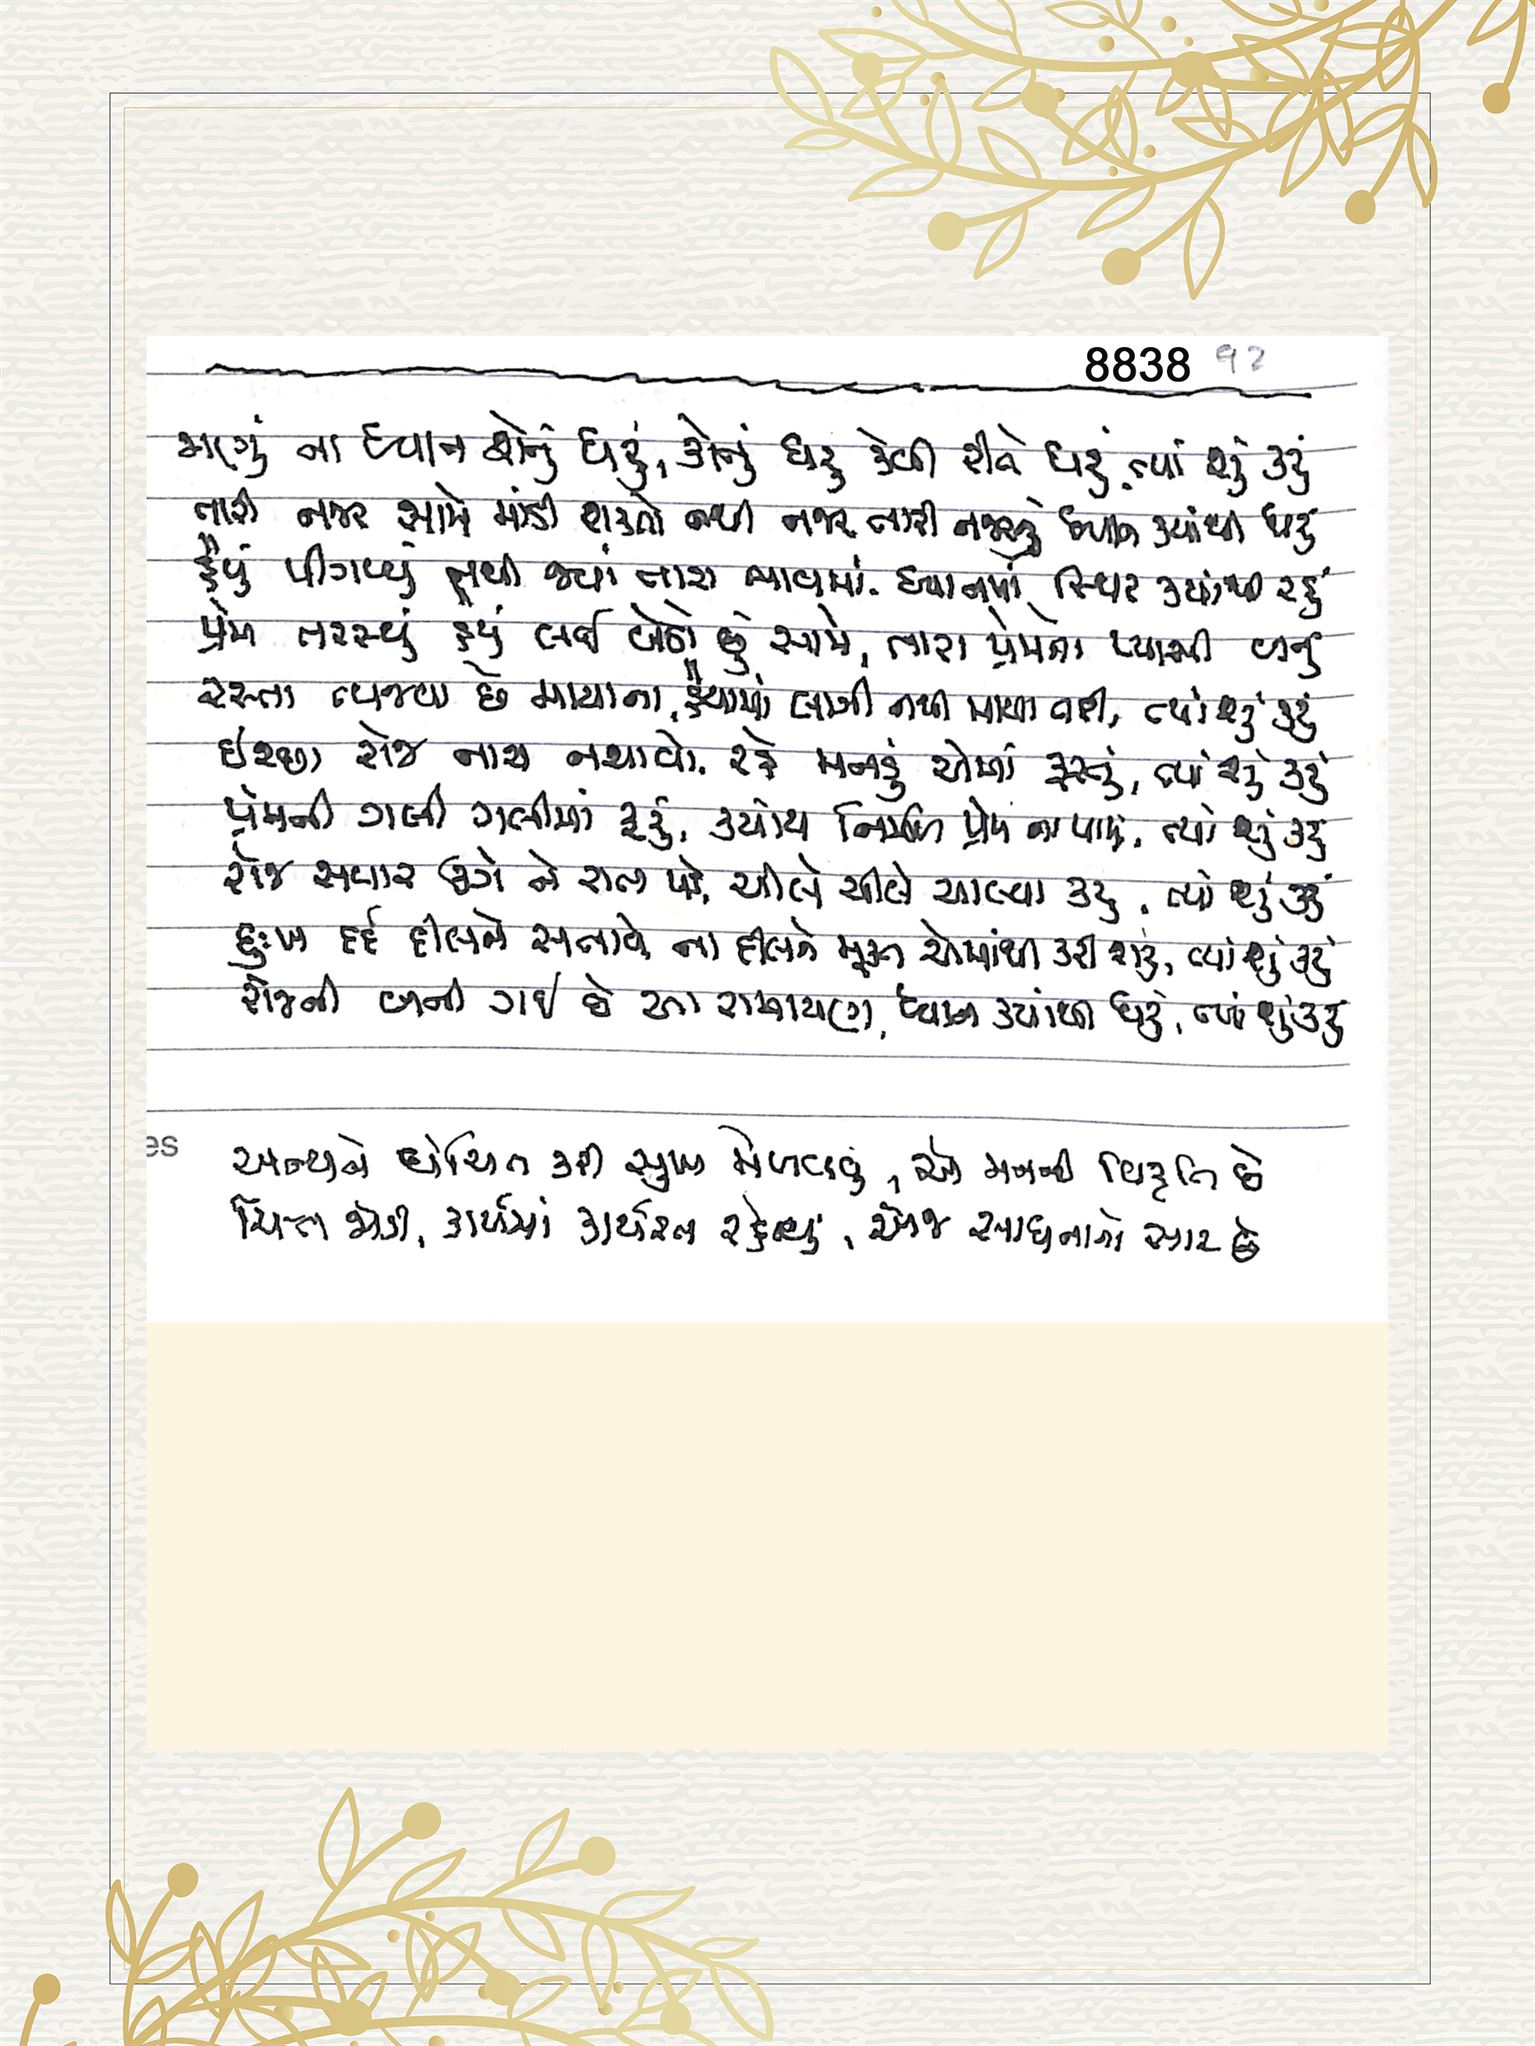 8838 ૧૨
જાણું ના ધ્યાન કોનું ધરું, કોનું ધરું કેવી રીતે ધરું, ત્યાં શું કરું
તારી નજર સામે માંડી શકતો નથી નજર, તારી નજરનું ધ્યાન ક્યાંથી ધરું
હૈયું પીગળ્યું નથી જ્યાં તારા ભાવમાં. ધ્યાનમાં સ્થિર ક્યાંથી રહું
પ્રેમ તરસ્યું હૈયું લઈ બેઠો છું સામે, તારા પ્રેમનો પ્યાસી બનું
રસ્તા ત્યજવા છે માયાના, હૈયામાં લાગી નથી માયા તારી, ત્યાં શું કરું
ઇચ્છા રોજ નાચ નચાવે. રહે મનડું એમાં ફરતું, ત્યાં શું કરું
પ્રેમની ગલી ગલીમાં ફરું, ક્યાંય નિર્મળ પ્રેમ ના પામું, ત્યાં શું કરું
રોજ સવાર ઊગે ને રાત પડે, ચીલે ચીલે ચાલ્યા કરું, ત્યાં શું કરું
દુઃખ દર્દ દીલને સતાવે, ના દીલને મૂક્ત એમાંથી કરી શકું, ત્યાં શું કરું
રોજની બની ગઈ છે આ રામાયણ, ધ્યાન ક્યાંથી ધરું, ત્યાં શું કરું
es
અન્યને કરી સુખ મેળવવું, એ મનની વિકૃતિ છે
ચિત્ત જોડી, કાર્યમાં કાર્યરત રહેવું, એજ સાધનાનો સાર છે